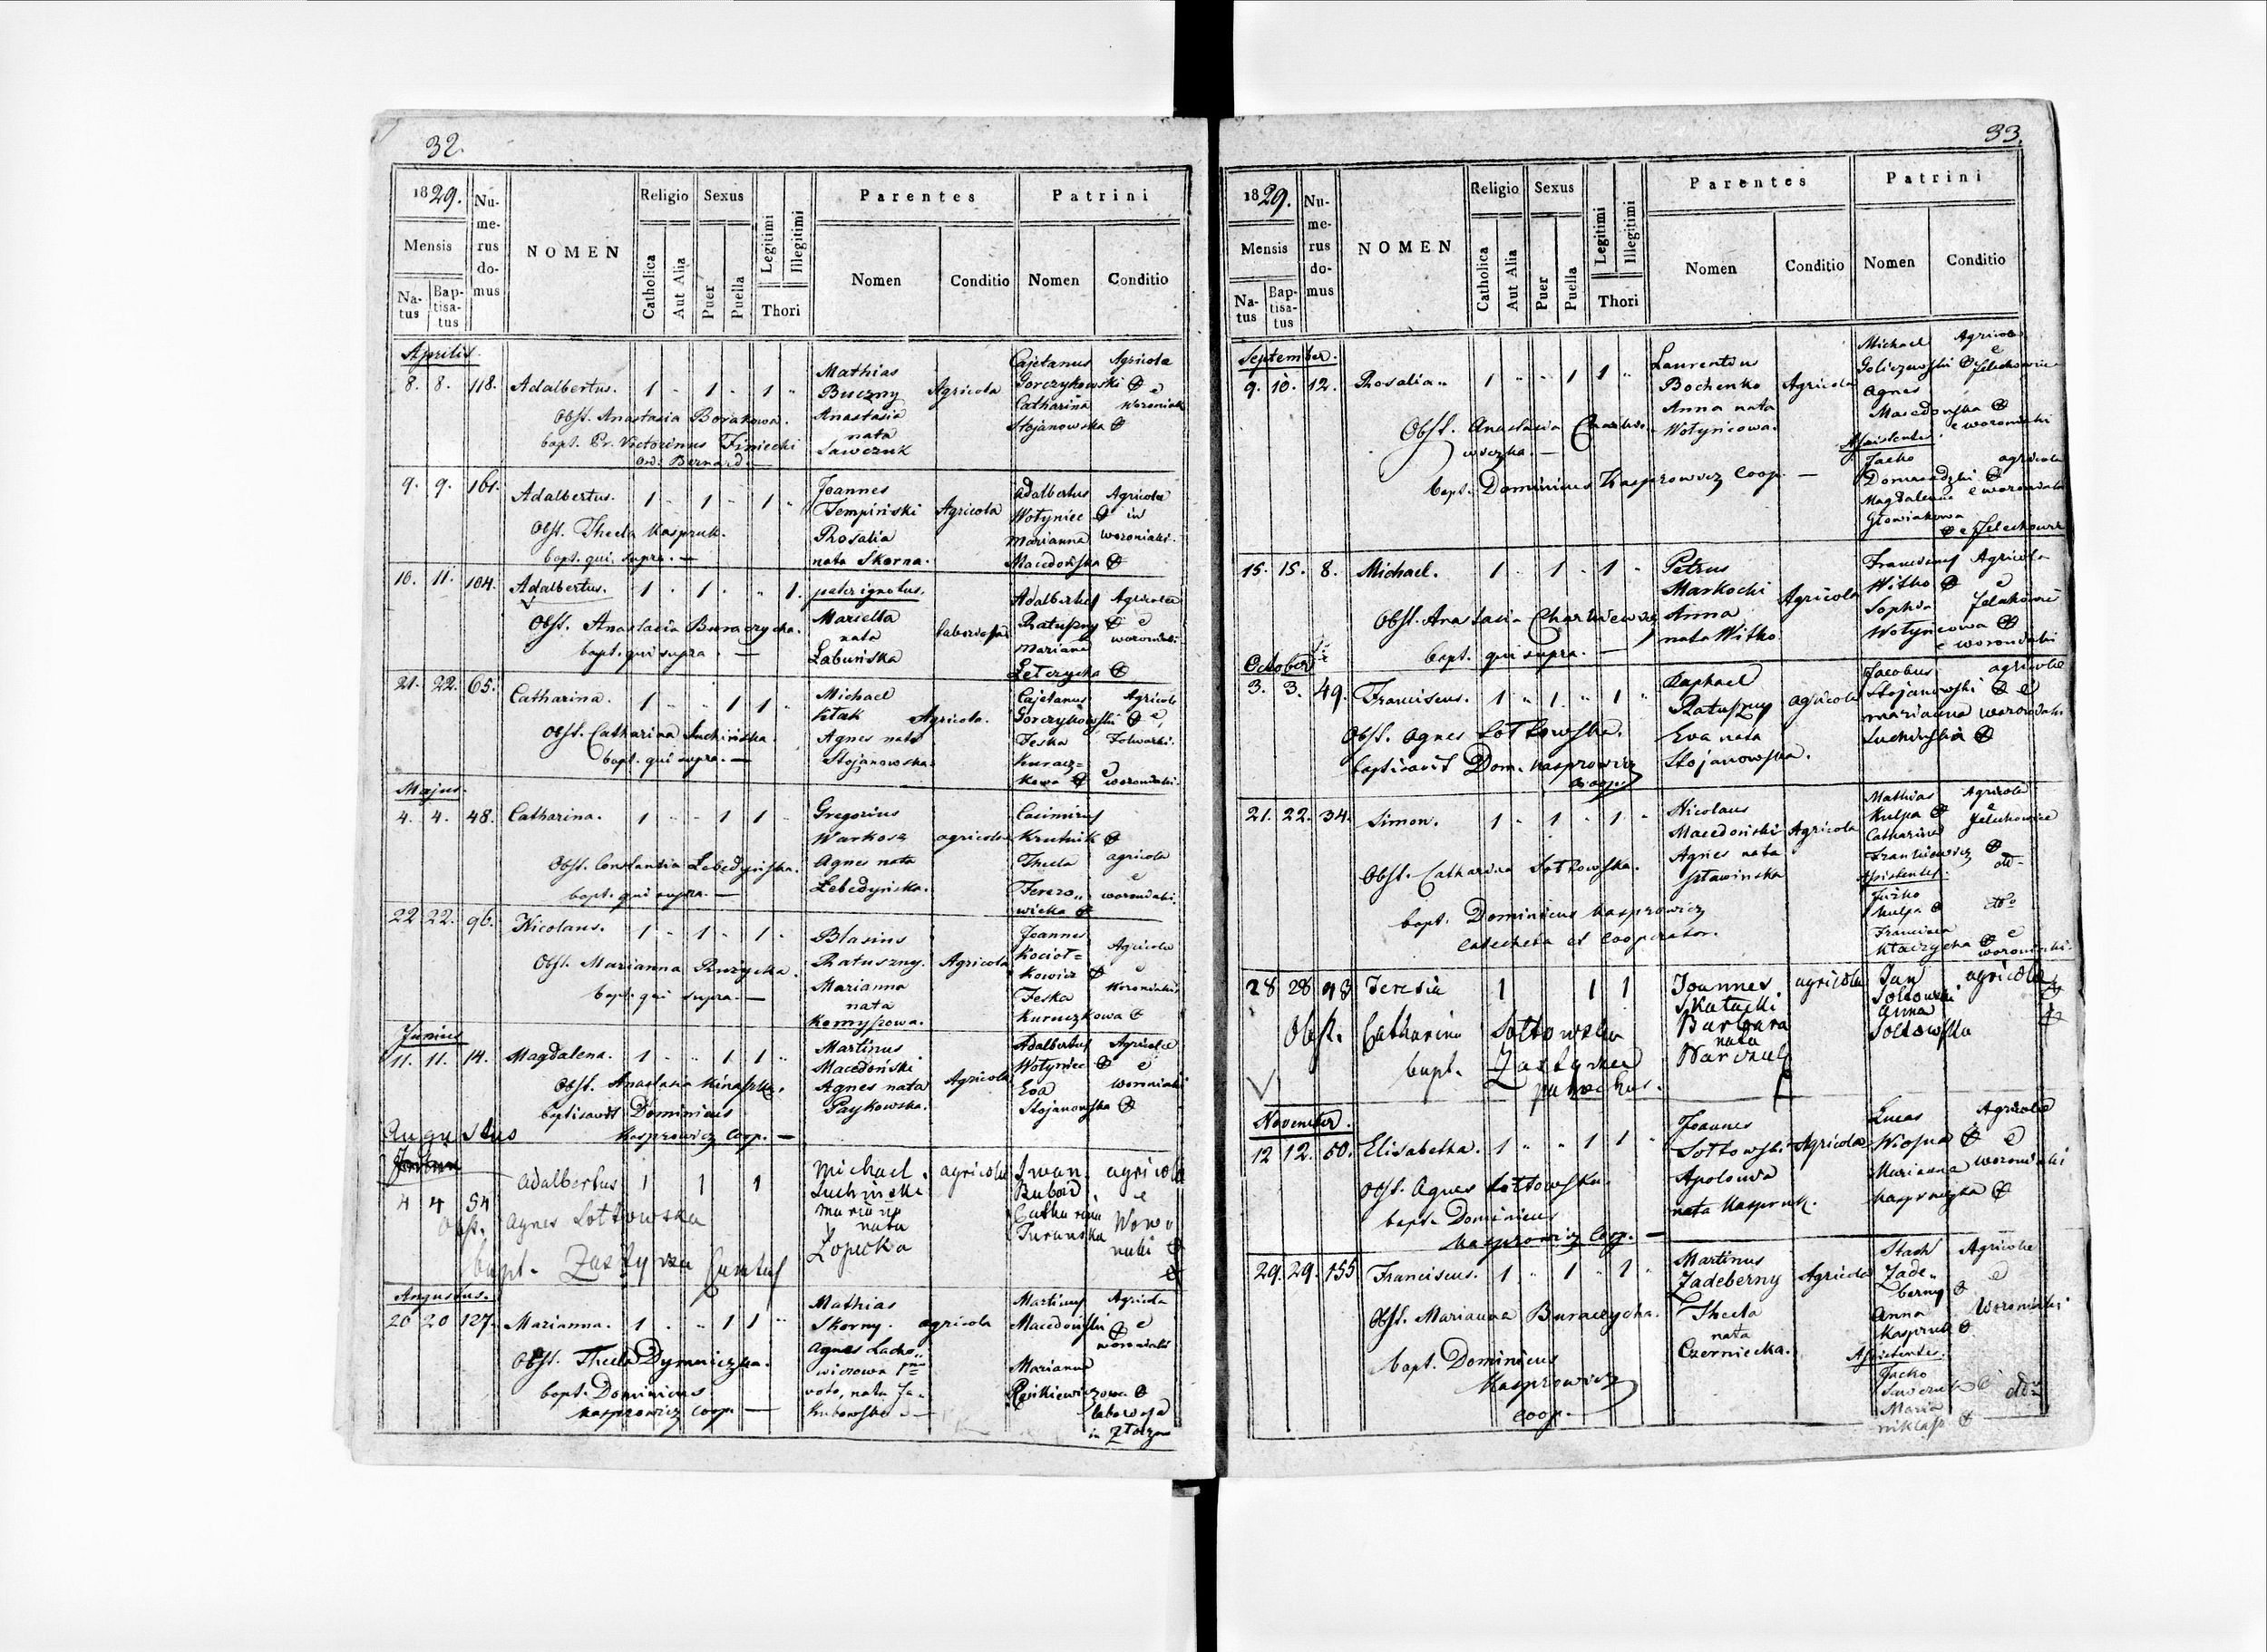 32.
1829.
Mensis
Na-
tus
Bap-
tisa-
tus
Nu-
me-
rus
do-
mus
NOMEN
Religio
Catholica
Aut Alia
Sexus
Puer
Puella
Legitimi
Illegitimi
Thori
Parentes
Nomen
Conditio
Patrini
Nomen
Conditio
Aprilis.
8. 8. 118. Adalbertus. 1 " 1 " 1 "
Mathias
Buczny
Anastasia
nata
Sawczuk
Agricola
Cajetanus
Gorczykowski
Catharina
Stojanowska
Agricolae
e
Woroniaki
Obst. Anastasia Borakowa.
bapt. Pr. Victorinus
Ord. Bernard. —
9. 9. 161. Adalbertus. 1 " 1 " 1 "
Joannes
Tempinski
Rosalia
nata Skorna.
Agricola
Adalbertus
Wołyniec
Marianna
Macedońska
Agricolae
in
Woroniaki.
Obst. Thecla Kaspruk.
bapt. qui supra. —
10. 11. 104. Adalbertus. 1 " 1 " " 1.
pater ignotus.
Marietta
nata
Łabuńska
Adalbertus
Ratuszny
Mariana
Agricolae
e
woroniaki
Obst. Anastasia Buraczycha.
bapt. qui supra. —
21. 22. 65. Catharina. 1 " " 1 1 "
Michael
Kłak
Agnes nata
Stojanowska.
Agricola.
Cajetanus
Gorczykowski
Feska
Kuracz=
kowa
Agricola
e
Folwarki.
e
woroniaki.
Obst. Catharina Suchińska.
bapt. qui supra. —
Majus.
4. 4. 48. Catharina. 1 " " 1 1 "
Gregorius
Warkosz
Agnes nata
Lebedyńska.
agricola
Casimirus
Krutnik
Thecla
agricola
e
woroniaki.
Obst. Constantia Lebedyńska.
bapt. qui supra. —
22 22. 96. Nicolaus. 1 " 1 " 1 "
Blasius
Ratuszny.
Marianna
nata
Agricola
Joannes
Kocioł=
kowicz
Feska
Kuruczkowa
Agricola
e
Woroniaki
Obst. Marianna Ruzycka.
bapt. qui supra. —
Junius
11. 11. 14. Magdalena. 1 " " 1 1 "
Martinus
Macedoński
Agnes nata
Paykowska.
Agricola
Adalbertus
Wołyniec
Eva
Stojanowska
Agricolae
e
woroniaki
Obst. Anastasia
baptisavit Dominicus
Kasprowicz Coop. —
Augustus
4 4 54 Adalbertus 1 1 1
Michael
Suchinski
nata
Łopecka
agricola
Iwan
Catharina
agricolae
e
Obst. Agnes Sołtowska
bapt.
Augustus.
20 20 127. Marianna. 1 " " 1 1 "
Mathias
Skorny.
Agnes Lacho=
wiczowa
voto, nata Ja=
kubowska —
agricola
Martinus
Macedoński
Marianna
Agricola
e
woroniaki
in Złoczow
Obst. Thecla Dymniczka.
bapt. Dominicus
Kasprowicz Coop. —
33.
1829.
Mensis
Na-
tus
Bap-
tisa-
tus
Nu-
me-
rus
do-
mus
NOMEN
Religio
Catholica
Aut Alia
Sexus
Puer
Puella
Legitimi
Illegitimi
Thori
Parentes
Nomen
Conditio
Patrini
Nomen
Conditio
September.
9. 10. 12. Rosalia. 1 " " 1 1 "
Laurentius
Bochenko
Anna nata
Wołyncowa.
Agricola
Michael
Goliczewski
Agnes
Macedońska
Assistentes.
Jacko
Magdalena
Głowiakowa
Agricola
e Jelechowice
e woroniaki
agricola
e woroniaki
e Jelechowice
Obst. Anastasia
bapt. Dominicus Kasprowicz Coop. —
15. 15. 8. Michael. 1 " 1 " 1 "
Petrus
Markocki
Anna
nata Witko.
Agricola
Franciscus
Witko
Sophia
Wołyncowa
Agricola
e
Jelechowice
e woroniaki
Obst. Anastasia
bapt. qui supra. —
October
3. 3. 49. Franciscus. 1 " 1 " 1 "
Raphael
Ratuszny
Eva nata
Stojanowska.
agricola
Jacobus
Stojanowski
Marianna
Suchińska
agricolae
e
woroniaki
Obst. Agnes Sołtowska.
baptisavit Dom. Kasprowicz
Coop.
21. 22. 34. Simon. 1 " 1 " 1 "
Nicolaus
Macedoński
Agnes nata
Sławinska
Agricola
Mathias
Kulpa
Catharina
Assistentes.
Kulpa
Francisca
Agricola
e
Jelechowice
dto
dto
e
woroniaki.
Obst. Catharina Sołtowska.
bapt. Dominicus Kasprowicz
Catecheta et Cooperator.
28 28 98 Teresia 1 1 1
Joannes
Barbara
nata
agricola
Jan
Sołtowski
Anna
Sołtowska
agricolae
Obst. Catharina Sołtowska
bapt.
parochus.
November.
12 12. 50. Elisabetha. 1 " " 1 1 "
Joannes
Sołtowski
Apolonia
nata Kaspruk.
Agricola
Lucas
Wiosna
Marianna
Agricola
e
woroniaki
Obst. Agnes Sołtowska.
bapt. Dominicus
Kasprowicz Coop. —
29. 29. 155 Franciscus. 1 " 1 " 1 "
Martinus
Zadeberny
Thecla
nata
Czerniecka.
Agricola
Stach
Zade=
berny
Anna
Kaspruk
Assistentes.
Jacko
Maria
Agricolae
e
Woroniaki
dto
Obst. Marianna Buraczycha.
bapt. Dominicus
Kasprowicz
Coop. —